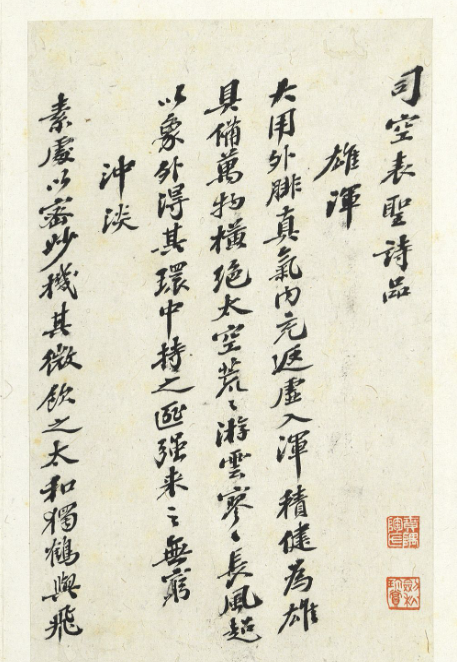 司空表聖詩品
雄渾
大用外腓真氣內充返虛入渾積健為雄
具備萬物橫絕太空荒〻游雲寥〻長風超
以象外得其環中持之匪强来之無窮
沖淡
素處以密妙機其微飲之太和獨鶴與飛